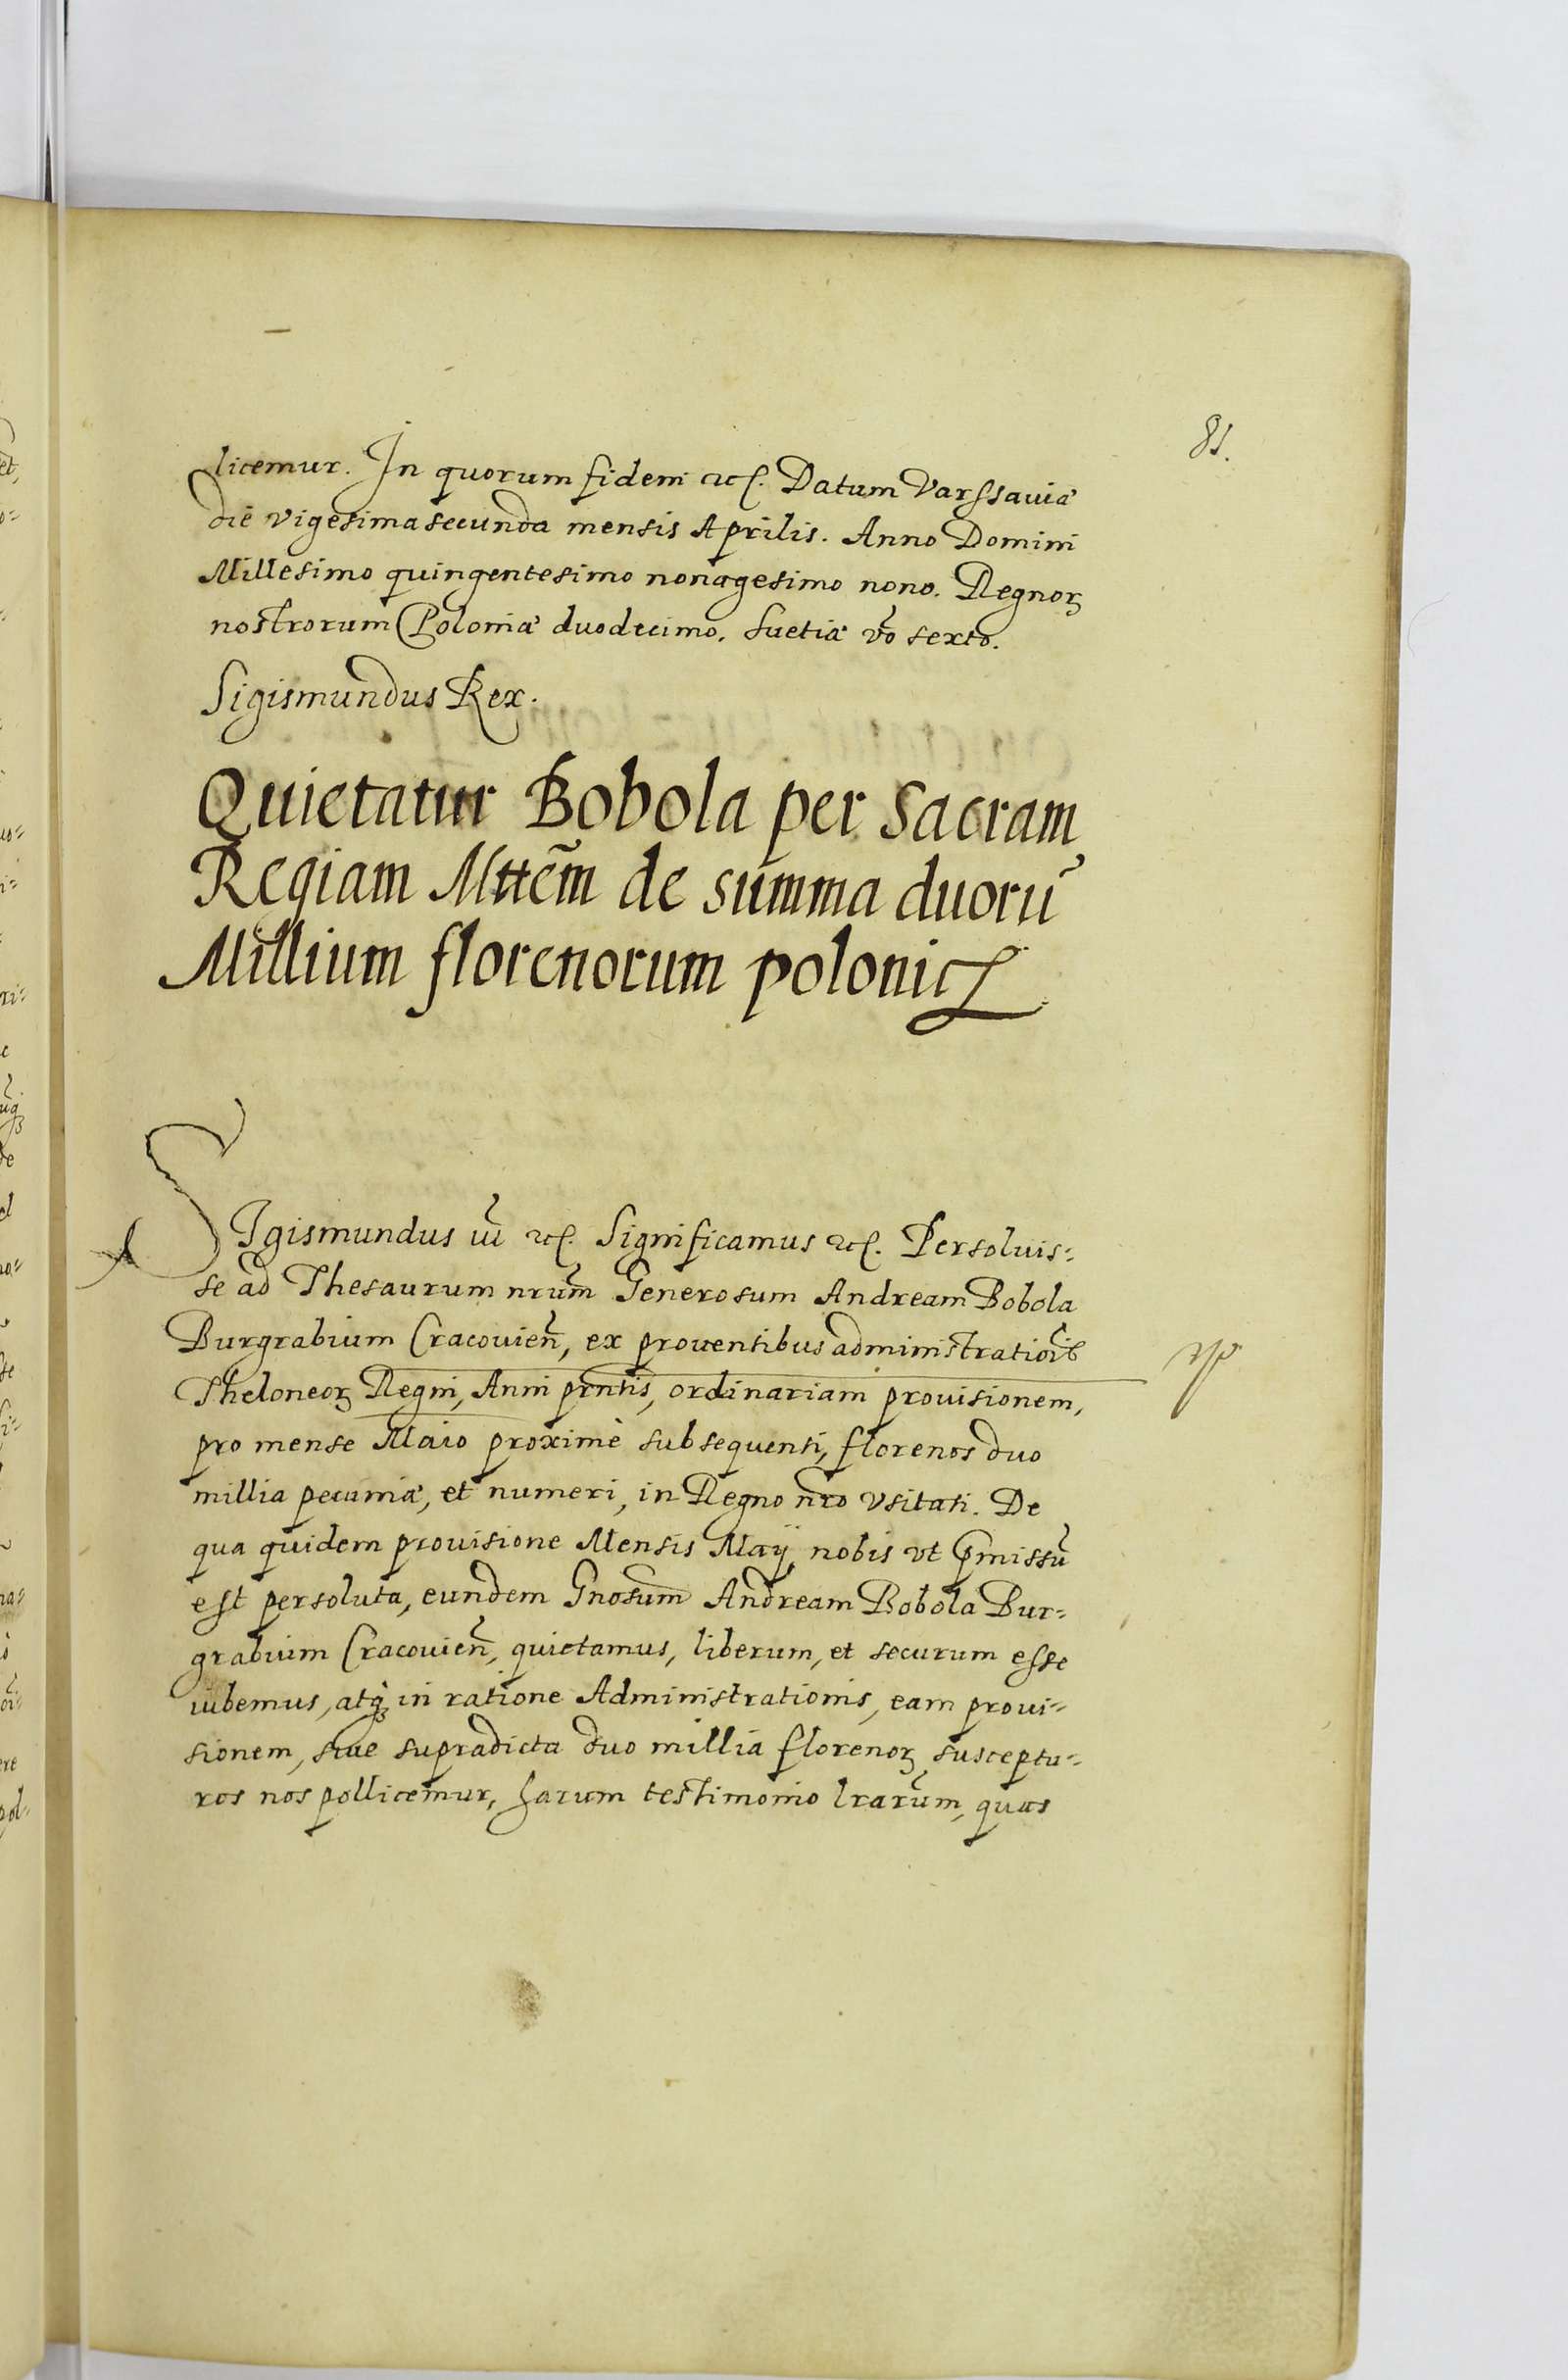 81.
licemur. In quorum fidem etc. Datum Varssaviæ
die vigesima secunda mensis Aprilis. Anno Domini
Millesimo quingentesimo nonagesimo nono. Regnoꝝ
nostrorum Poloniæ duodecimo. Suetiæ vo sexto.
Sigismundus Rex.
Quietatur Bobola per Sacram
Regiam Mttem̃ de summa duorũ
Millium florenorum polonic
SIgismundus iii etc. Significamus etc. Persoluis=
se ad Thesaurum nrum̃ Generosum Andream Bobola
Burgrabium Cracovien̄, ex proventibus administrationis
Theloneoꝝ Regni, Anni prntis, ordinariam provisionem,
pro mense Maio proximè subsequenti, florenos duo
millia pecuniæ, et numeri, in Regno nro vsitati. De
qua quidem provisione Mensis Maij nobis vt p̃missũ
est persoluta, eundem Gnosum Andream Bobola Bur=
grabium Cracovien̄, quietamus, liberum, et securum esse
iubemus, atqꝫ in ratione Administrationis, eam provi=
sionem, siue supradicta duo millia florenoꝝ susceptu=
ros nos pollicemur, harum testimonio lrarum̃, quas